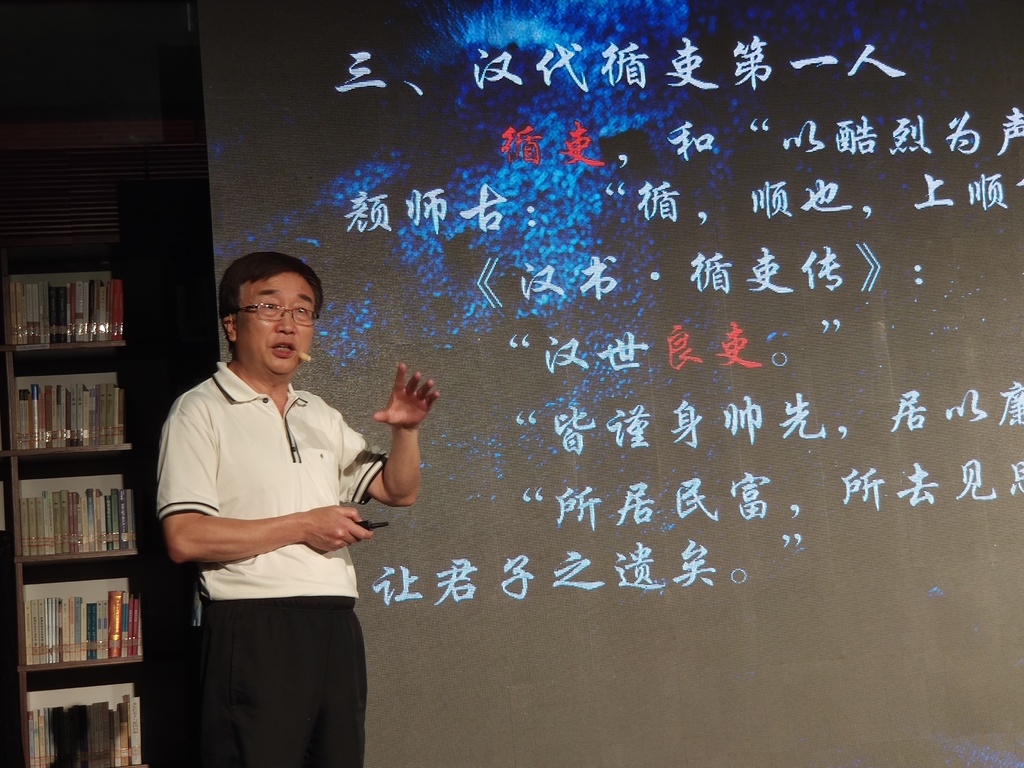 三、汉代循吏第一人
循吏，和“以酷烈为声
颜师古：“循，顺也，上顺
《汉书·循吏传》：
“汉世良吏。”
“皆谨身帅先，居以廉
“所居民富，所去见思
让君子之遗矣。”